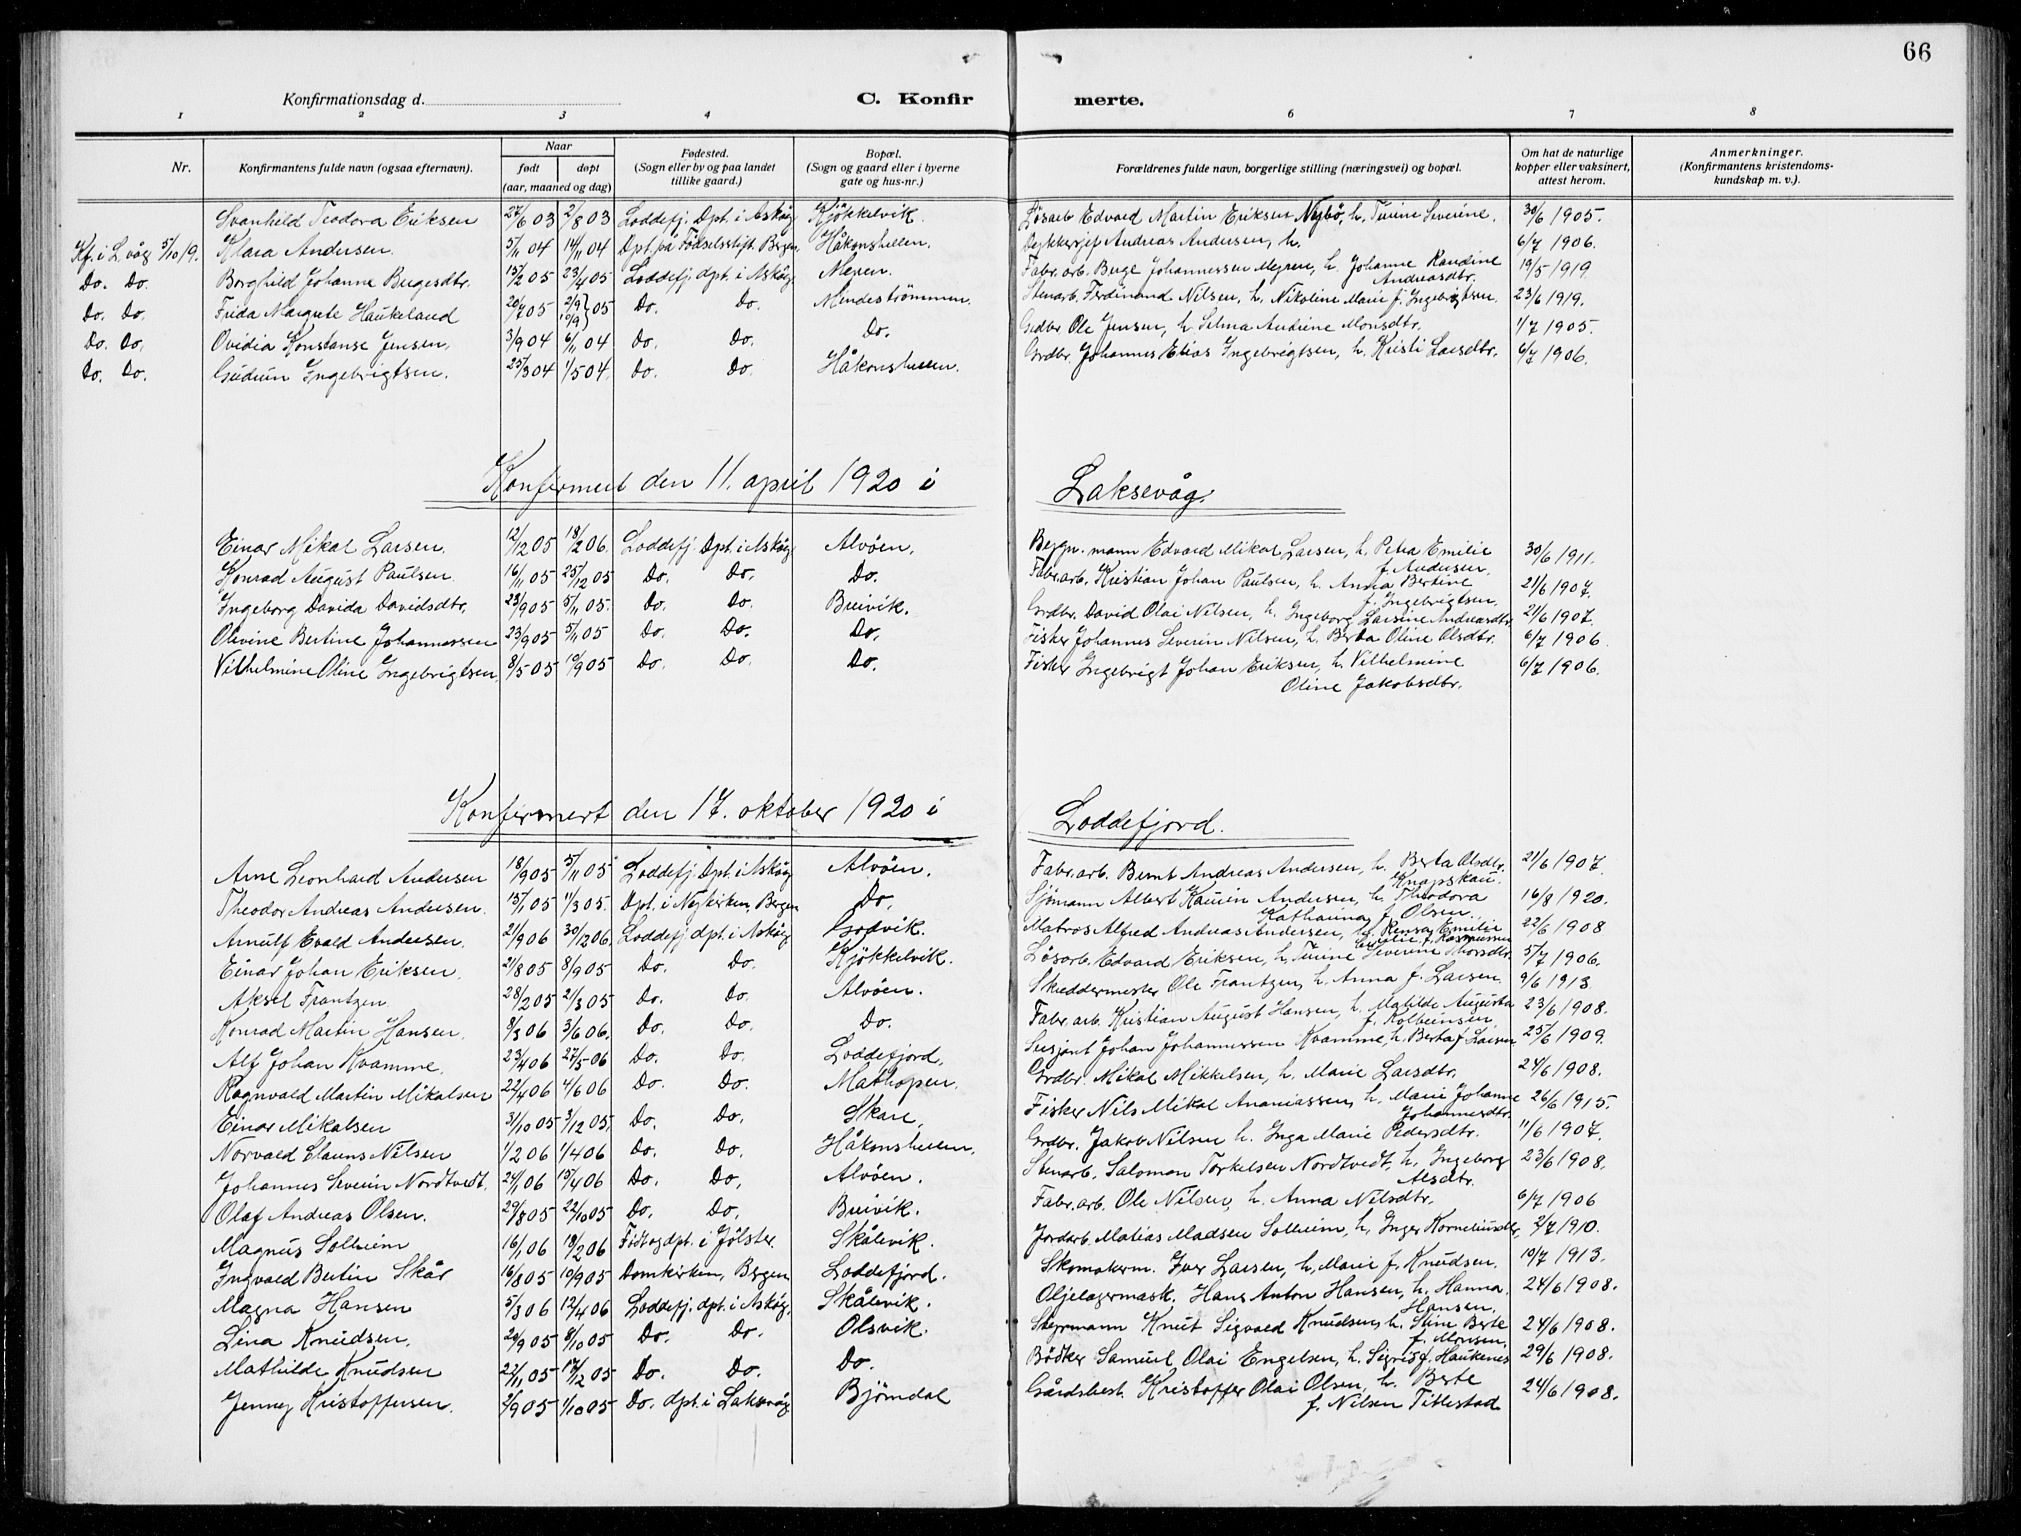 66
Konfirmationsdag d. C. Konfirmerte.
1 2 3 4 6 7 8
Nr. Konfirmantens fulde navn (ogsaa efternavn). Naar født døpt (aar, maaned og dag) Fødested. (Sogn eller by og paa landet tillike gaard.) Bopæl. (Sogn og gaard eller i byerne gate og hus-nr.) Forældrenes fulde navn, borgerlige stilling (næringsvei) og bopæl. Om hat de naturlige kopper eller vaksinert, attest herom. Anmerkninger. (Konfirmantens kristendomskundskap m. v.).
Svanhild Teodora Eriksen 27/6 03 2/8 03 Loddefj. Dpt. i Askøy Kjökkelvik. Løsarb. Edvard Martin Eriksen Nybö, h. Turine Severine. 30/6 1905.
Kf. i L.våg 5/10 19. Klara Andersen. 5/11 04 14/11 04 Dpt. på Fødselsstift. Bergen Håkonshellen. Dykkersjef Andreas Andersen, h. 6/7 1906.
Do. Do. Borghild Johanne Bugesdtr. 15/2 05 23/4 05 Loddefj. dpt. i Askøy Meren. Fabr. arb. Buge Johannessen Myren, h. Johanne Randine Andreasdtr. 19/5 1919
Do. Do. Frida Margrete Haukeland 20/7 05 2/9 05 Do. Do. Mindeströmmen. Stenarb. Ferdinand Nilsen, h. Nikoline Marie f. Ingebrigtsen. 23/6 1919.
Do. Do. Ovidia Konstanse Jensen. 3/9 04 6/11 04 Do. Do. Do. Grdbr. Ole Jensen, h. Selma Andrine Monsdtr. 1/7 1905.
Do. Do. Gudrun Ingebrigtsen. 25/3 04 1/5 04. Do. Do. Håkonshellen. Grdbr. Johannes Elias Ingebrigtsen, h. Kristi Larsdtr. 6/7 1906.
Konfirmert den 11. april 1920 i Laksevåg.
Einar Mikal Larsen. 12/12 05 18/2 06. Loddefj. Dpt. i Askøy Alvöen. Bergv. mann Edvard Mikal Larsen, h. Petra Emilie f. Andersen. 30/6 1911.
Konrad August Paulsen 16/11 05 25/12 05 Do. Do. Do. Fabr. arb. Kristian Johan Paulsen, h. Anna Bertine f. Ingebrigtsen. 21/6 1907.
Ingeborg Davida Davidsdtr. 23/9 05 5/11 05. Do. Do. Breivik. Grdbr. David Olai Nilsen, h. Ingeborg Larsine Andreasdtr. 21/6 1907.
Olevine Bertine Johannessen 23/9 05 5/11 05 Do. Do. Do. Fisker Johannes Severin Nilsen, h. Berta Oline Olsdtr. 6/7 1906.
Vilhelmine Oline Ingebrigtsen. 8/5 05 10/9 05 Do. Do. Do. Fisker Ingebrigt Johan Eriksen, h. Vilhelmine Oline Jakobsdtr. 6/7 1906.
Konfirmert den 17. oktober 1920 i Loddefjord.
Arne Leonhard Andersen 18/9 05 5/11 05 Loddefj. Dpt. i Askøy Alvöen. Fabr. arb. Bernt Andreas Andersen, h. Berta Olsdtr. Knapskau. 21/6 1907.
Theodor Andreas Andersen. 15/1 05 1/3 05. Dpt. i Nykirken, Bergen Do. Sjömann Albert Andersen, h. Theodora Katharina f. Olsen. 16/8 1920.
Arnulf Evald Andersen. 21/9 06 30/12 06. Loddefj. dpt. i Askøy Godvik. Matros Alfred Andreas Andersen, h. Emilie f. Rasmussen 22/6 1908
Einar Johan Eriksen. 21/8 05 8/9 05 Do. Do. Kjökkelvik. Løsarb. Edvard Eriksen, h. Turine Severine Thorsdtr. 5/7 1906.
Aksel Frantzen 28/2 05 21/3 05 Do. Do. Alvöen. Skreddermester Ole Frantzen, h. Anna f. Larsen. 9/6 1913
Konrad Martin Hansen. 9/3 06 3/6 06. Do. Do. Do. Fabr. arb. Kristian August Hansen, h. Matilde Augusta f. Kolbeinsen 23/6 1908.
Alf Johan Kvamme. 23/4 06 27/5 06 Do. Do. Loddefjord. Sersjant Johan Johannessen Kvamme, h. Berta f. Larsen 25/6 1909.
Ragnvald Martin Mikalsen 22/4 06 4/6 06 Do. Do. Mathopen. Grdbr. Mikal Mikkelsen, h. Marie Larsdtr. 24/6 1908.
Einar Mikalsen 31/10 05 3/12 05. Do. Do. Skare. Fisker Nils Mikal Ananiassen, h. Marie Johanne Johannesdtr. 26/6 1915.
Norvald Claus Nilsen 1/2 06 1/4 06 Do. Do. Håkonshellen. Grdbr. Jakob Nilsen h. Inga Marie Pedersdtr. 11/6 1907.
Johannes Severin Nordtvedt. 24/1 06 15/4 06 Do. Do. Alvöen. Stenarb. Salomon Torkelsen Nordtvedt, h. Ingeborg Alsdtr. 23/6 1908.
Olaf Andreas Olsen. 29/8 05 22/10 05 Do. Do. Breivik. Fabr. arb. Ole Nilsen, h. Anna Nilsdtr. 6/7 1906
Magnus Solheim 16/1 06 18/2 06 Född og dpt. i Jölster. Skålevik. Jordarb. Matias Madsen Solheim, h. Inger Korneliusdtr. 2/7 1910.
Ingvald Bertin Skår 16/8 05 10/9 05 Domkirken, Bergen Loddefjord. Skomakerm. Iver Larsen, h. Marie f. Knudsen. 10/7 1913.
Magna Hansen 5/3 06 12/4 06 Loddefj. dpt. i Askøy. Skålevik. Oljelagermask. Hans Anton Hansen, h. Hanna Hansen. 24/6 1908.
Lina Knudsen. 20/9 05 8/10 05 Do. Do. Olsvik. Styrmann Knut Sigvald Knudsen, h. Stine Berte f. Monsen. 24/6 1908.
Mathilde Knudsen 22/11 05 17/12 05 Do. Do. Do. Bödker Samuel Olai Engelsen, h. Sigrid f. Haukenes 29/6 1908.
Jenny Kristoffersen. 2/9 05 1/10 05 Do. dpt. i Laksevåg Björndal Gårdsbest. Kristoffer Olai Olsen, h. Berte f. Nilsen Titlestad 24/6 1908.